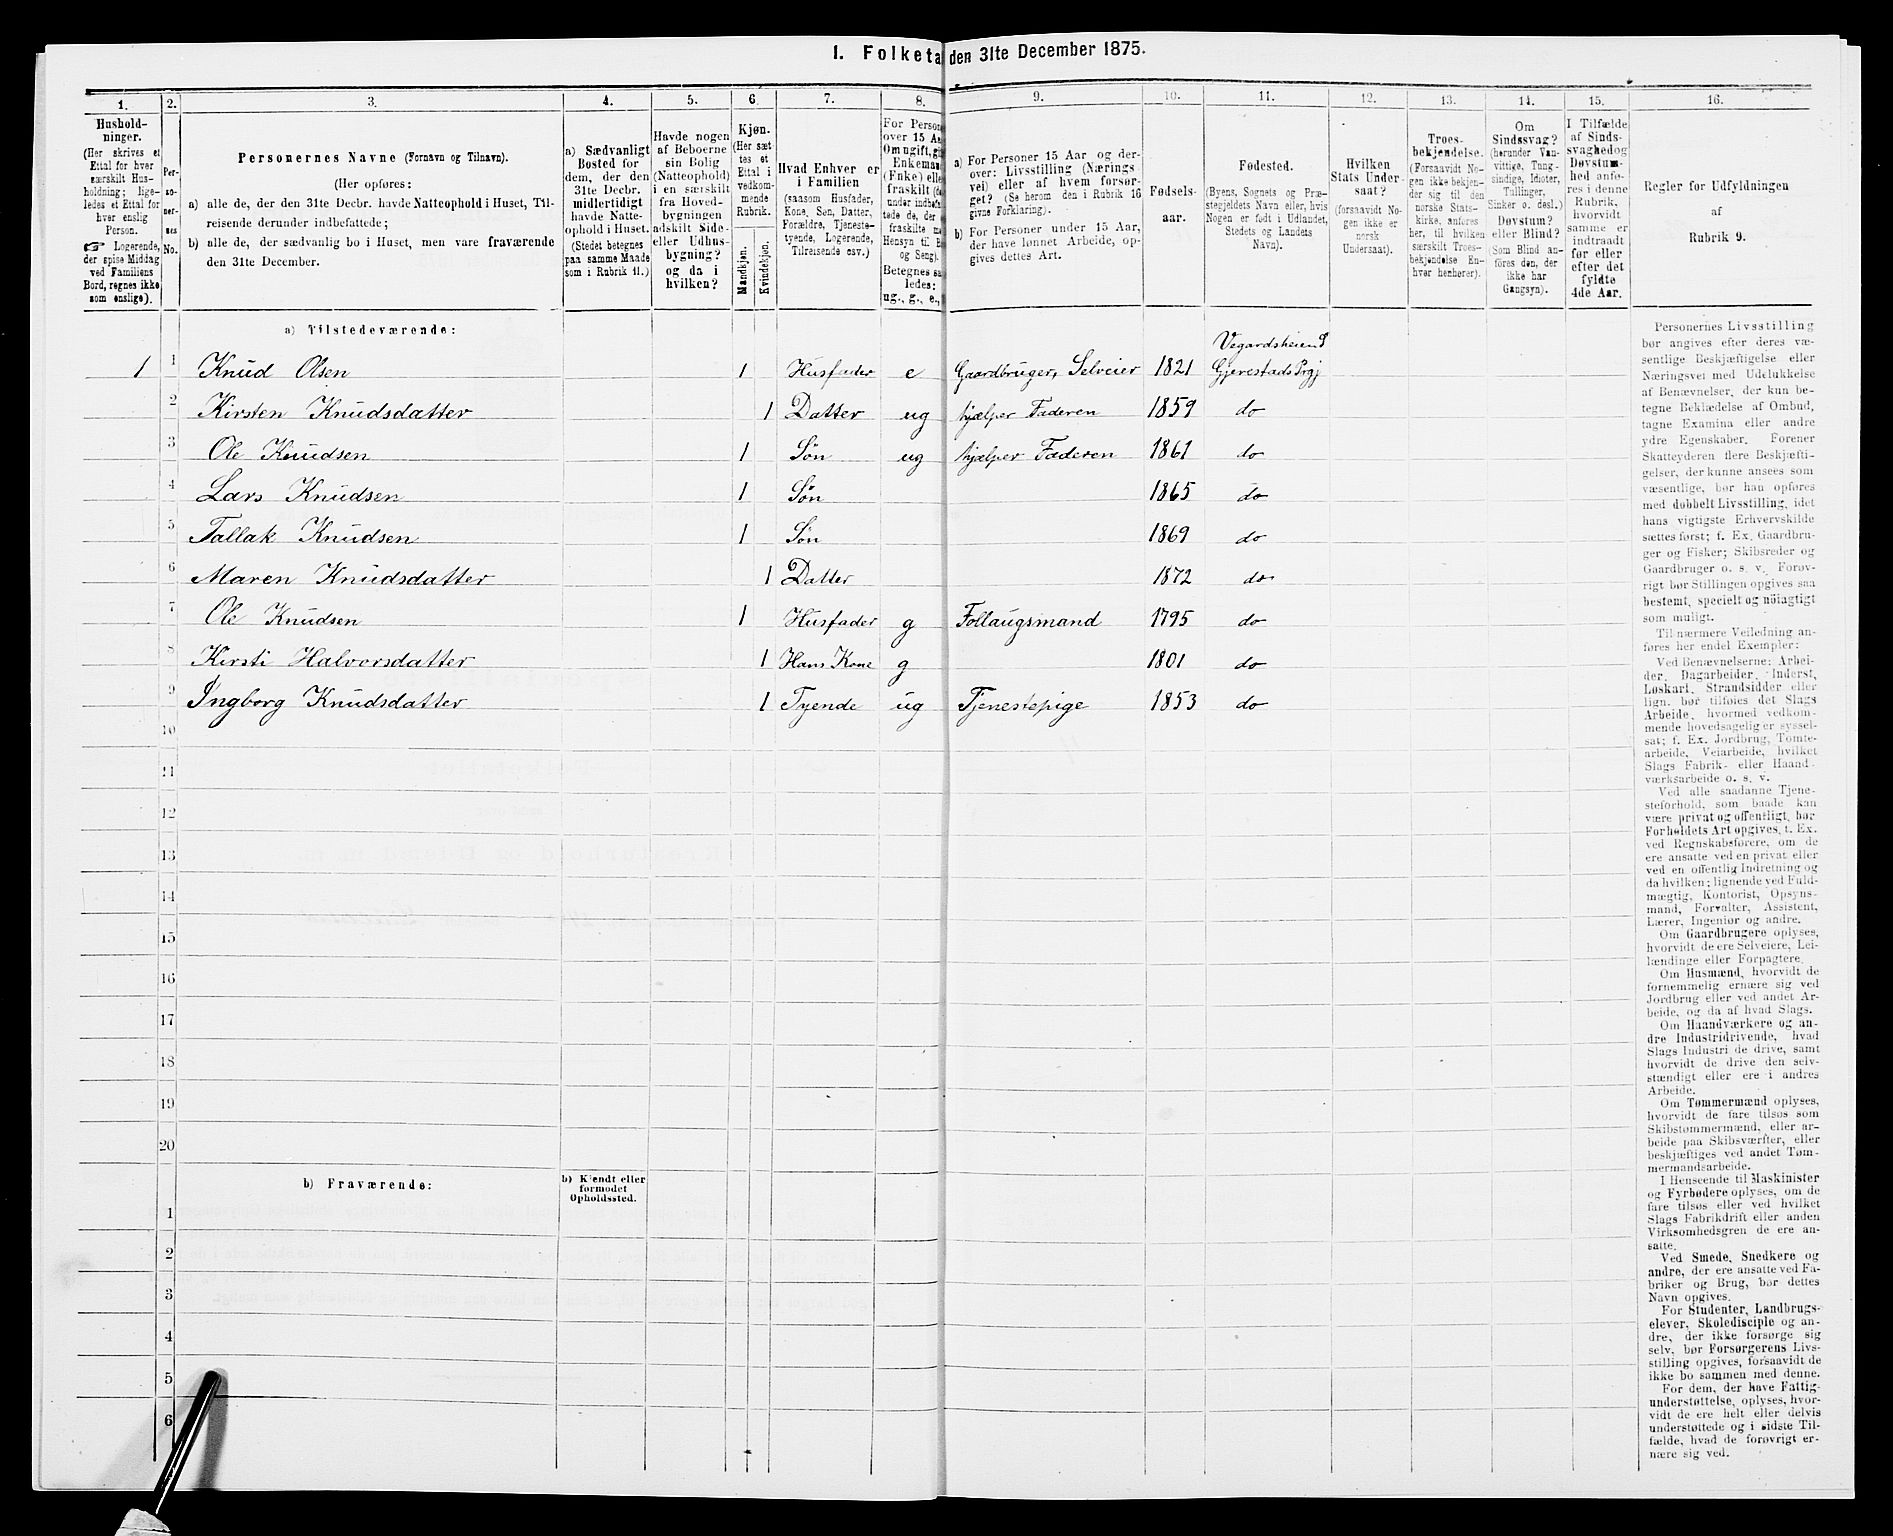 1. Folketa den 31te December 1875.
1. 2. 3. 4. 5. 6. 7. 8. 9. 10. 11. 12. 13. 14. 15. 16.
Hushold-
ninger.
(Her skrives et
Ettal for hver
særskilt Hus-
holdning; lige-
ledes et Ettal for
hver enslig
Person.
☞ Logerende,
der spise Middag
ved Familiens
Bord, regnes ikke
som enslige).
Per-
so-
ner-
nes
No.
Personernes Navne (Fornavn og Tilnavn).
(Her opføres:
a) alle de, der den 31te Decbr. havde Natteophold i Huset, Til-
reisende derunder indbefattede;
b) alle de, der sædvanlig bo i Huset, men vare fraværende
den 31te December.
a) Sædvanligt
Bosted for
dem, der den
31te Decbr.
midlertidigt
havde Natte-
ophold i Huset.
(Stedet betegnes
paa samme Maade
som i Rubrik 11.)
Havde nogen
af Beboerne
sin Bolig
(Natteophold)
i en særskilt
fra Hoved-
bygningen
adskilt Side-
eller Udhus-
bygning?
og da i
hvilken?
Kjøn.
(Her sæt-
tes et
Ettal i
vedkom-
mende
Rubrik.
Mandkjøn.
Kvindekjøn.
Hvad Enhver er
i Familien
(saasom Husfader,
Kone, Søn, Datter,
Forældre, Tjeneste-
tyende, Logerende,
Tilreisende osv.)
For Person
over 15 Aa
Om ugift, gi
Enkeman
(Enke) elle
fraskilt (de
under indbefat-
tede de, der
fraskilte m
Hensyn til B
og Seng).
Betegnes saa
ledes:
ug., g., e.,
a) For Personer 15 Aar og der-
over: Livsstilling (Nærings-
vei) eller af hvem forsør-
get? (Se herom den i Rubrik 16
givne Forklaring).
b) For Personer under 15 Aar,
der have lønnet Arbeide, op-
gives dettes Art.
Fødsels-
aar.
Fødested.
(Byens, Sognets og Præ-
stegjeldets Navn eller, hvis
Nogen er født i Udlandet,
Stedets og Landets
Navn).
Hvilken
Stats Under-
saat?
(forsaavidt No-
gen ikke er
norsk
Undersaat).
Troes-
bekjendelse.
(Forsaavidt No-
gen ikke bekjen-
der sig til den
norske Stats-
kirke, anføres
her, til hvilken
særskilt Troes-
bekjendelse En-
hver henhører).
Om
Sindssvag?
(herunder Van-
vittige, Tung-
sindige, Idioter,
Tullinger,
Sinker o. desl.)
Døvstum?
eller Blind?
(Som Blind an-
føres den, der
ikke har
Gangsyn).
I Tilfælde
af Sinds-
svaghed og
Døvstum-
hed anfø-
res i denne
Rubrik,
hvorvidt
samme er
indtraadt
før eller
efter det
fyldte
4de Aar.
Regler for Udfyldningen
af
Rubrik 9.
a) Tilstedeværende:
Vegardsheiens
1 1 Knud Olsen 1 Husfader e Gaardbruger, Selveier 1821 Gjerestads Prgj
2 Kirsten Knudsdatter 1 Datter ug hjælper Faderen 1859 do
3 Ole Knudsen 1 Søn ug hjælper Faderen 1861 do
4 Lars Knudsen 1 Søn 1865 do
5 Tallak Knudsen 1 Søn 1869 do
6 Maren Knudsdatter 1 Datter 1872 do
7 Ole Knudsen 1 Husfader g Follaugsmand 1795 do
8 Kirsti Halvorsdatter 1 Hans Kone g 1801 do
9 Ingborg Knudsdatter 1 Tyende ug Tjenestepige 1853 do
10
11
12
13
14
15
16
17
18
19
20
b) Fraværende:
b) Kjendt eller
formodet
Opholdssted.
1
2
3
4
5
6
Personernes Livsstilling
bør angives efter deres væ-
sentlige Beskjæftigelse eller
Næringsvei med Udelukkelse
af Benævnelser, der kun be-
tegne Beklædelse af Ombud,
tagne Examina eller andre
ydre Egenskaber. Forener
Skatteyderen flere Beskjæfti-
gelser, der kunne ansees som
væsentlige, bør han opføres
med dobbelt Livsstilling, idet
hans vigtigste Erhvervskilde
sættes først; f. Ex. Gaardbru-
ger og Fisker; Skibsreder og
Gaardbruger o. s. v. Forøv-
rigt bør Stillingen opgives saa
bestemt, specielt og nöiagtigt
som muligt.
Til nærmere Veiledning an-
føres her endel Exempler:
Ved Benævnelserne: Arbei-
der, Dagarbeider, Inderst,
Løskarl, Strandsidder eller
lign. bør tilføies det Slags
Arbeide, hvormed vedkom-
mende hovedsagelig er syssel-
sat; f. Ex. Jordbrug, Tomte-
arbeide, Veiarbeide, hvilket
Slags Fabrik- eller Haand-
værksarbeide o. s. v.
Ved alle saadanne Tjene-
steforhold, som baade kan
være privat og offentligt, bør
Forholdets Art opgives, t. Ex.
ved Regnskabsførere, om de
ere ansatte ved en privat eller
ved en offentlig Indretning og
da hvilken; lignende ved Fuld-
mægtig, Kontorist, Opsyns-
mand, Forvalter, Assistent,
Lærer, Ingeniør og andre.
Om Gaardbrugere oplyses,
hvorvidt de ere Selveiere, Lei-
lændinge eller Forpagtere.
Om Husmænd, hvorvidt de
fornemmelig ernære sig ved
Jordbrug eller ved andet Ar-
beide, og da af hvad Slags.
Om Haandværkere og an-
dre Industridrivende, hvad
Slags Industri de drive, samt
hvorvidt de drive den selv-
stændigt eller ere i andres
Arbeide.
Om Tømmermænd oplyses,
hvorvidt de fare tilsøs som
Skibstømmermænd, eller ar-
beide paa Skibsværfter, eller
beskjæftiges ved andet Tøm-
mermandsarbeide.
I Henseende til Maskinister
og Fyrbødere oplyses, om de
fare tilsøs eller ved hvilket
Slags Fabrikdrift eller anden
Virksomhedsgren de ere an-
satte.
Ved Smede, Snedkere og
andre, der ere ansatte ved Fa-
briker og Brug, bør dettes
Navn opgives.
For Studenter, Landbrugs-
elever, Skoledisciple og an-
dre, der ikke forsørge sig
selv, bør Forsørgerens Livs-
stilling opgives, forsaavidt de
ikke bo sammen med denne.
For dem, der have Fattig-
understøttelse, oplyses, hvor-
vidt de ere helt eller delvis
understøttede og i sidste Til-
fælde, hvad de forøvrigt er-
nære sig ved.